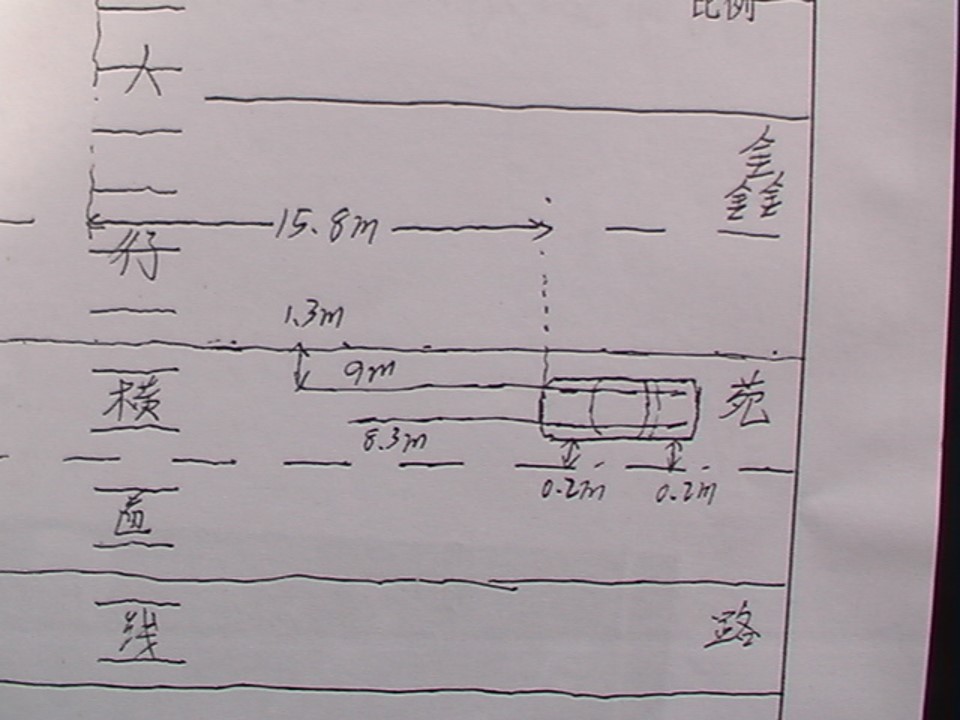 比例
人
行
横
道
线
15.8m
1.3m
9m
8.3m
0.2m
0.2m
金鑫
苑
路